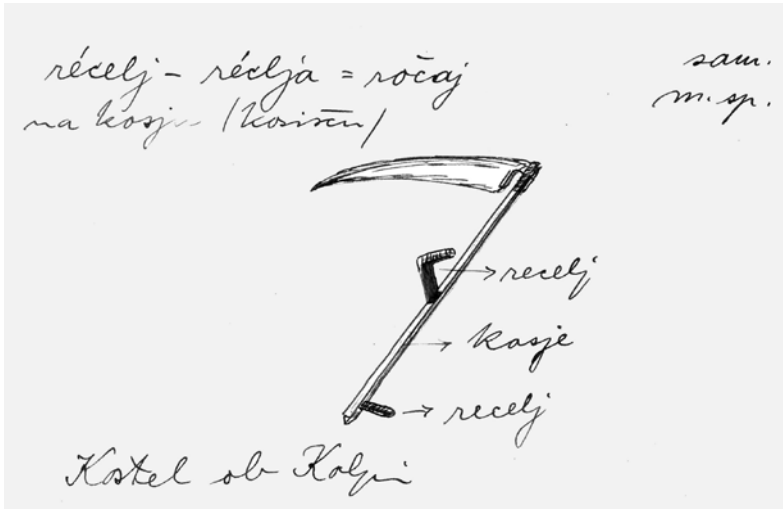 récelj - réclja = ročaj
sam.
na kosju (kosišču)
m. sp.
recelj
kosje
recelj
Kostel ob Kolpi